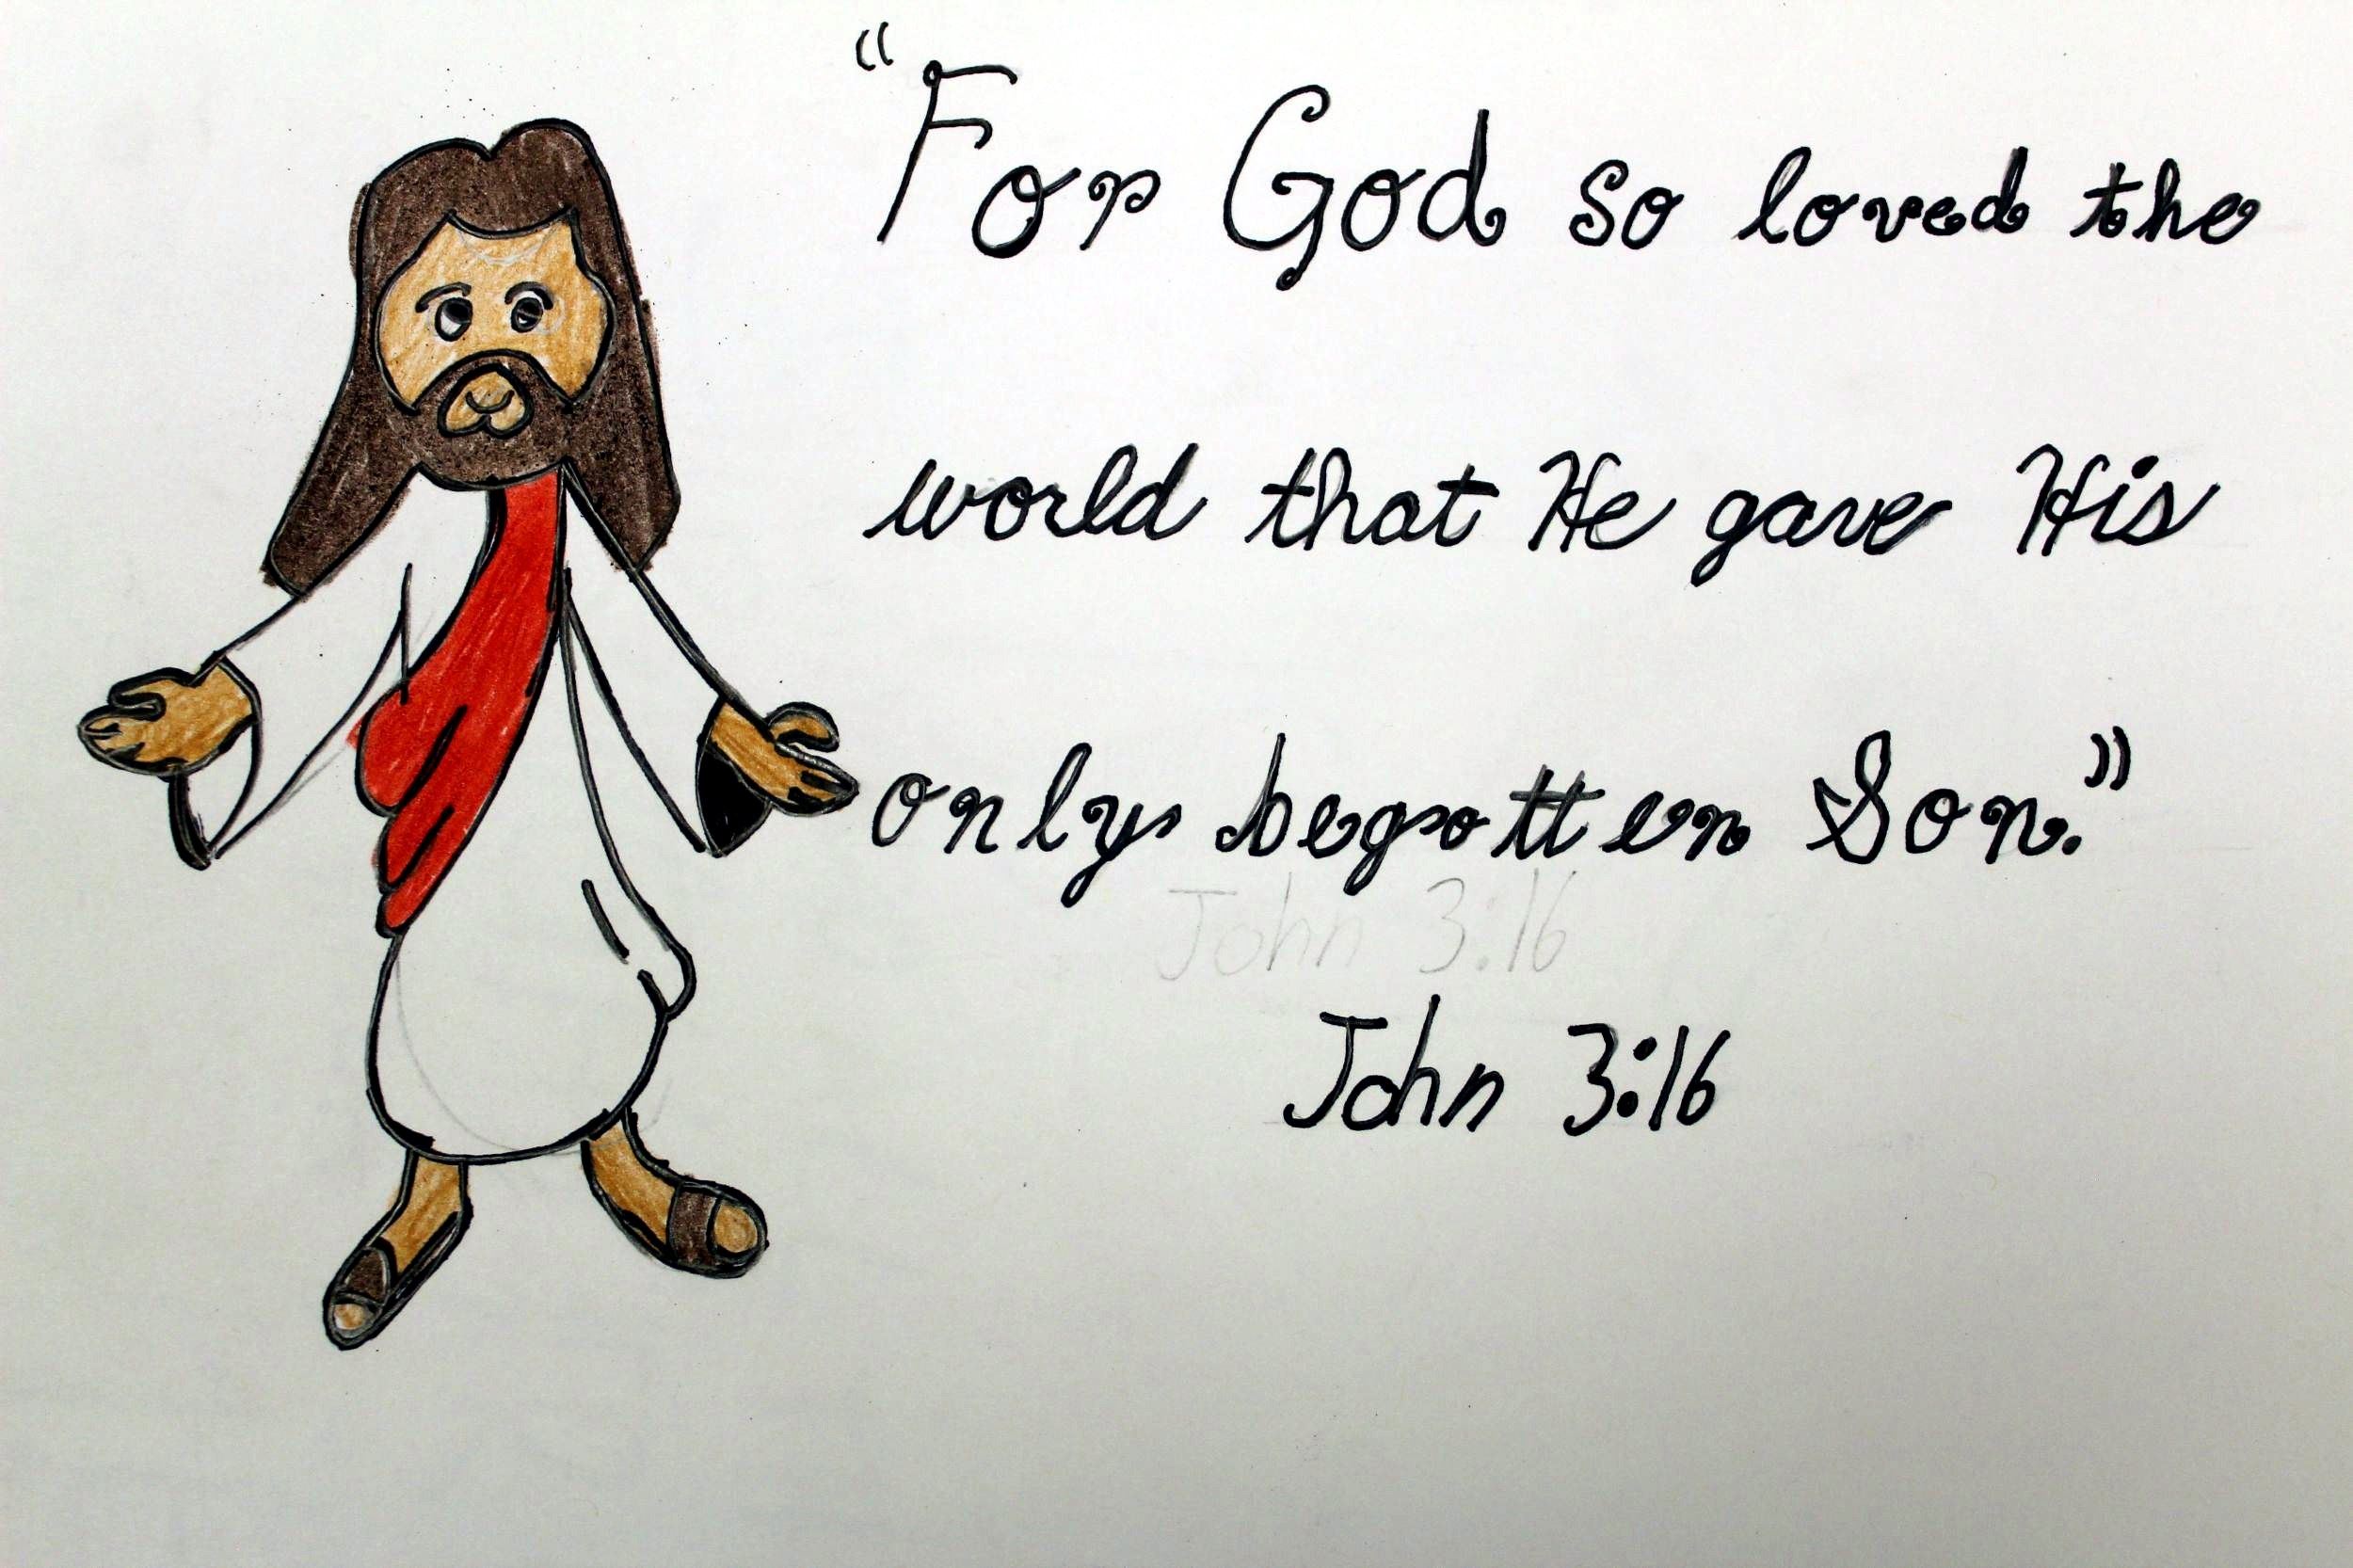 "For God so loved the
world that He gave His
only begotten Son."
John 3:16
John 3:16